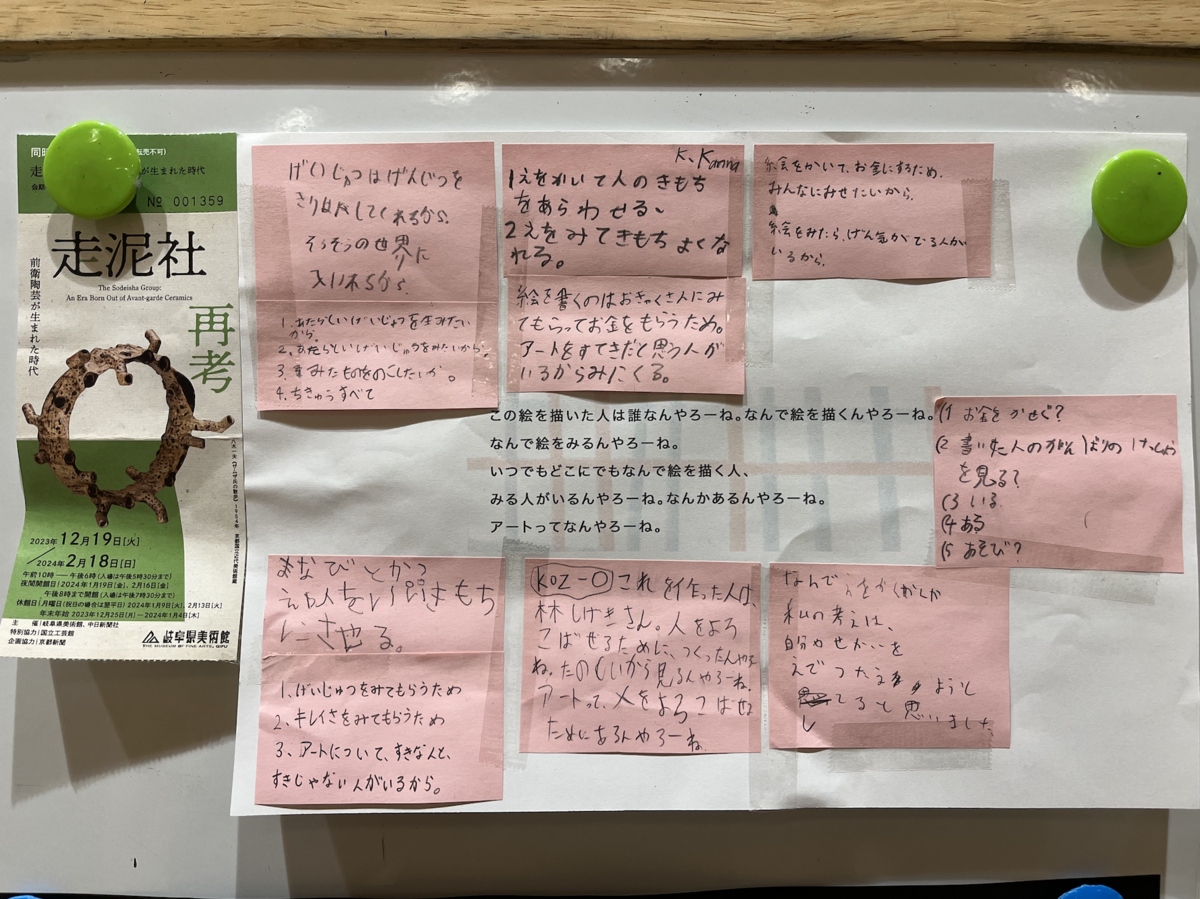 転売不可)
が生まれた時代
No 001359
走泥社
The Sodeisha Group:
An Era Born Out of Avant-garde Ceramics
再考
前衛陶芸が生まれた時代
2023年12月19日[火]
2024年2月18日[日]
午前10時—午後6時(入場は午後5時30分まで)
夜間開館日|2024年1月19日[金]、2月16日[金]
午後8時まで開館(入場は午後7時30分まで)
休館日|月曜日(祝日の場合は翌平日) 2024年1月9日[火]、2月13日[火]
年末年始 2023年12月25日[月]—2024年1月4日[木]
主 催|岐阜県美術館、中日新聞社
特別協力|国立工芸館
企画協力|京都新聞
岐阜県美術館
THE MUSEUM OF FINE ARTS, GIFU
げいじゅつはげんじつを
きりはなしてくれるから。
そうぞうの世界に
入れるから。
1. あたらしいげいじゅつを生みたい
から。
2. あたらしいげいじゅつをみたいから。
3
4. ちきゅうすべて
K、Kanna
1えをかいて人のきもち
をあらわせる~
2えをみてきもちよくな
れる。
絵を書くのはおきゃくさんにみ
てもらってお金をもらうため。
アートをすてきだと思う人が
いるからみにくる。
絵をかいて、お金にするため.
みんなにみせたいから.
絵をみたら、げん気がでる人が
いるから.
この絵を描いた人は誰なんやろーね。なんで絵を描くんやろーね。
なんで絵をみるんやろーね。
いつでもどこにでもなんで絵を描く人、
みる人がいるんやろーね。なんかあるんやろーね。
アートってなんやろーね。
(1 お金をかせぐ?
(2 書いた人のがんばりのけっしょう
を見る?
(3 いる
(4 ある
(5 あそび?
まなびとかつ
にさせる。
1、げいじゅつをみてもらうため
2、キレイさをみてもらうため
3、アートについて、すきな人と、
すきじゃない人がいるから。
KOZ-O これを作った人は、
林しげきさん。人をよろ
こばせるために、つくったんやろ
ね。たのしいから見るんやろーね。
アートって、人をよろこばせる
ためにあるんやろーね。
なんで をかくかしか
私の考えは、
自分のせかいを
えでつたえようと
してると思いました